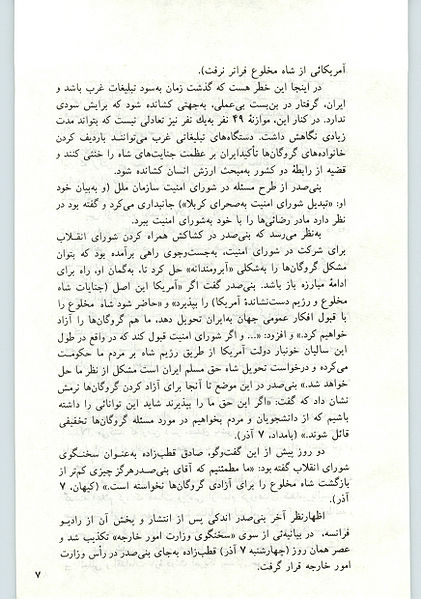 آمریکائی از شاه مخلوع فراتر نرفت).
در اینجا این خطر هست که گذشت زمان به‌سود تبلیغات غرب باشد و
ایران، گرفتار در بن‌بست بی‌عملی، به‌جهتی کشانده شود که برایش سودی
ندارد. در کنار این، موازنهٔ ۴۹ نفر به‌یك نفر نیز تعادلی نیست که بتواند مدت
زیادی نگاهش داشت. دستگاه‌های تبلیغاتی غرب می‌توانند باردیف کردن
خانواده‌های گروگان‌ها تأکیدایران بر عظمت جنایت‌های شاه را خنثی کنند و
قضیه از رابطهٔ دو کشور به‌مبحث ارزش انسان کشانده شود.
بنی‌صدر از طرح مسئله در شورای امنیت سازمان ملل (و به‌بیان خود
او: «تبدیل شورای امنیت به‌صحرای کربلا») جانبداری می‌کرد و گفته بود در
نظر دارد مادر رضائی‌ها را با خود به‌شورای امنیت ببرد.
به‌نظر می‌رسد که بنی‌صدر در کشاکش همراه کردن شورای انقلاب
برای شرکت در شورای امنیت، به‌جست‌وجوی راهی برآمده بود که بتوان
مشکل گروگان‌ها را به‌شکلی «آبرومندانه» حل کرد تا، به‌گمان او، راه برای
ادامهٔ مبارزه باز باشد. بنی‌صدر گفت اگر «آمریکا این اصل (جنایات شاه
مخلوع و رژیم دست‌نشاندهٔ آمریکا) را بپذیرد» و «حاضر شود شاه مخلوع را
با قبول افکار عمومی جهان به‌ایران تحویل دهد، ما هم گروگان‌ها را آزاد
خواهیم کرد.» و افزود: «... و اگر شورای امنیت قبول کند که در واقع در طول
این سالیان خونبار دولت آمریکا از طریق رژیم شاه بر مردم ما حکومت
می‌کرده و درخواست تحویل شاه حق مسلم ایران است مشکل از نظر ما حل
خواهد شد.» بنی‌صدر در این موضع تا آنجا برای آزاد کردن گروگان‌ها نرمش
نشان داد که گفت: «اگر این حق ما را بپذیرند شاید این توانائی را داشته
باشیم که از دانشجویان و مردم بخواهیم در مورد مسئله گروگان‌ها تخفیفی
قائل شوند.» (بامداد، ۷ آذر).
دو روز پیش از این گفت‌وگو، صادق قطب‌زاده به‌عنوان سخنگوی
شورای انقلاب گفته بود: «ما مطمئنیم که آقای بنی‌صدرهرگز چیزی کم‌تر از
بازگشت شاه مخلوع را برای آزادی گروگان‌ها نخواسته است.» (کیهان، ۷
آذر).
اظهارنظر آخر بنی‌صدر اندکی پس از انتشار و پخش آن از رادیو
فرانسه، در بیانیه‌ئی از سوی «سخنگوی وزارت امور خارجه» تکذیب شد و
عصر همان روز (چهارشنبه ۷ آذر) قطب‌زاده به‌جای بنی‌صدر در رأس وزارت
امور خارجه قرار گرفت.
۷